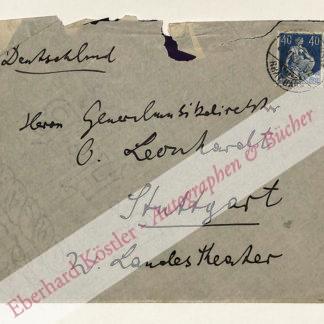 Deutschland
40 40
Herrn Generalmusikdirektor
O. Leonhardt
Stuttgart
W. Landestheater
Eberhard Köstler - Autographen & Bücher